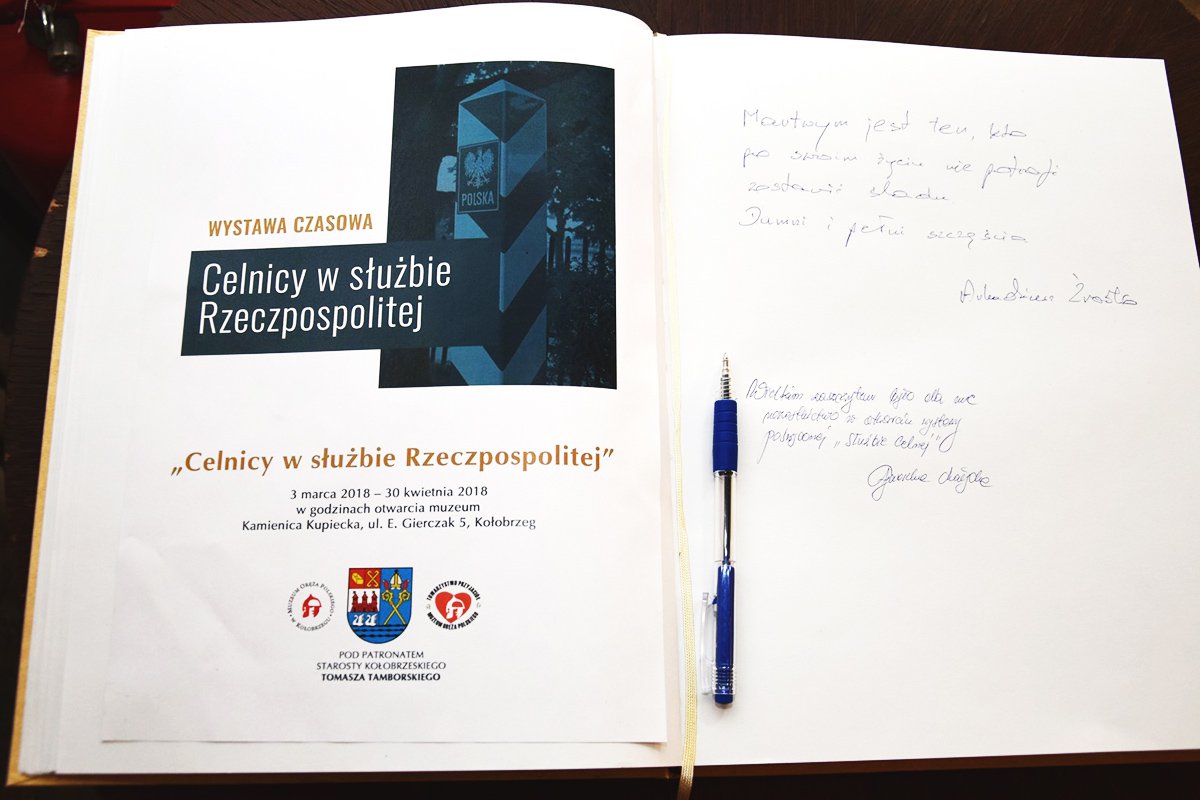 POLSKA
WYSTAWA CZASOWA
Celnicy w służbie
Rzeczpospolitej
„Celnicy w służbie Rzeczpospolitej”
3 marca 2018 – 30 kwietnia 2018
w godzinach otwarcia muzeum
Kamienica Kupiecka, ul. E. Gierczak 5, Kołobrzeg
MUZEUM ORĘŻA POLSKIEGO
W KOŁOBRZEGU
TOWARZYSTWO PRZYJACIÓŁ
MUZEUM ORĘŻA POLSKIEGO
POD PATRONATEM
STAROSTY KOŁOBRZESKIEGO
TOMASZA TAMBORSKIEGO
Martwym jest ten, kto
po swoim życiu nie potrafi
zostawić śladu.
Dumni i pełni szczęścia
Arkadiusz
Wielkim zaszczytem było dla nas
w otwarciu wystawy
poświęconej „Służbie Celnej”